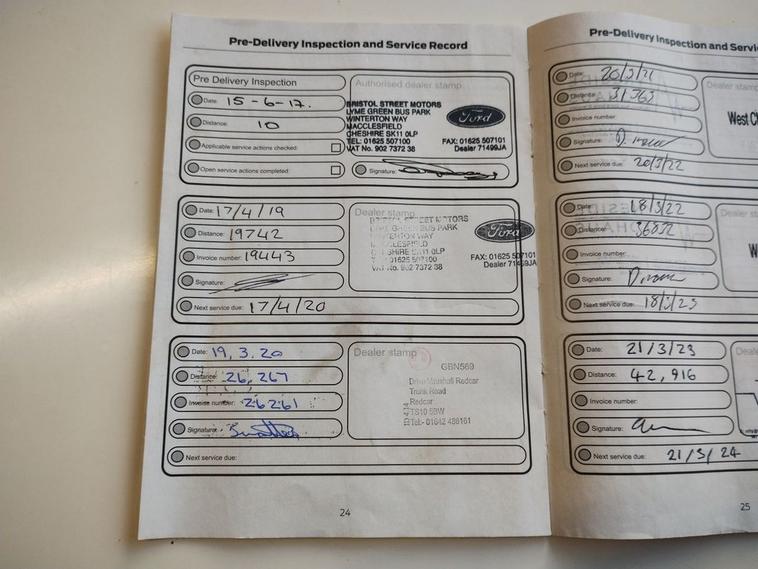 Pre-Delivery Inspection and Service Record
Pre Delivery Inspection
Date: 15-6-17.
Distance: 10
Applicable service actions checked:
Open service actions completed:
Authorised dealer stamp
BRISTOL STREET MOTORS
LYME GREEN BUS PARK
WINTERTON WAY
MACCLESFIELD
CHESHIRE SK11 0LP
TEL: 01625 507100 FAX: 01625 507101
VAT No. 902 7372 38 Dealer 71499JA
Ford
Signature:
Date: 17/4/19
Distance: 19742
Invoice number: 19443
Signature:
Next service due: 17/4/20
Dealer stamp
BRISTOL STREET MOTORS
LYME GREEN BUS PARK
WINTERTON WAY
MACCLESFIELD
CHESHIRE SK11 0LP
TEL: 01625 507100 FAX: 01625 507101
VAT No. 902 7372 38 Dealer 71499JA
Ford
Date: 19.3.20
Distance: 26,267
Invoice number: 26261
Signature:
Next service due:
Dealer stamp
GBN569
Drive Vauxhall Redcar
Trunk Road
Redcar
TS10 5BW
Tel:- 01642 486161
24
Pre-Delivery Inspection and Servi
Date:
Distance: 31,563
Invoice number:
Signature:
Next service due: 20/3/22
Dealer stam
West Ch
Date: 18/3/22
Distance:
Invoice number:
Signature:
Next service due: 18/3/23
Dealer st
W
Date: 21/3/23
Distance: 42,916
Invoice number:
Signature:
Next service due: 21/3/24
Deale
25